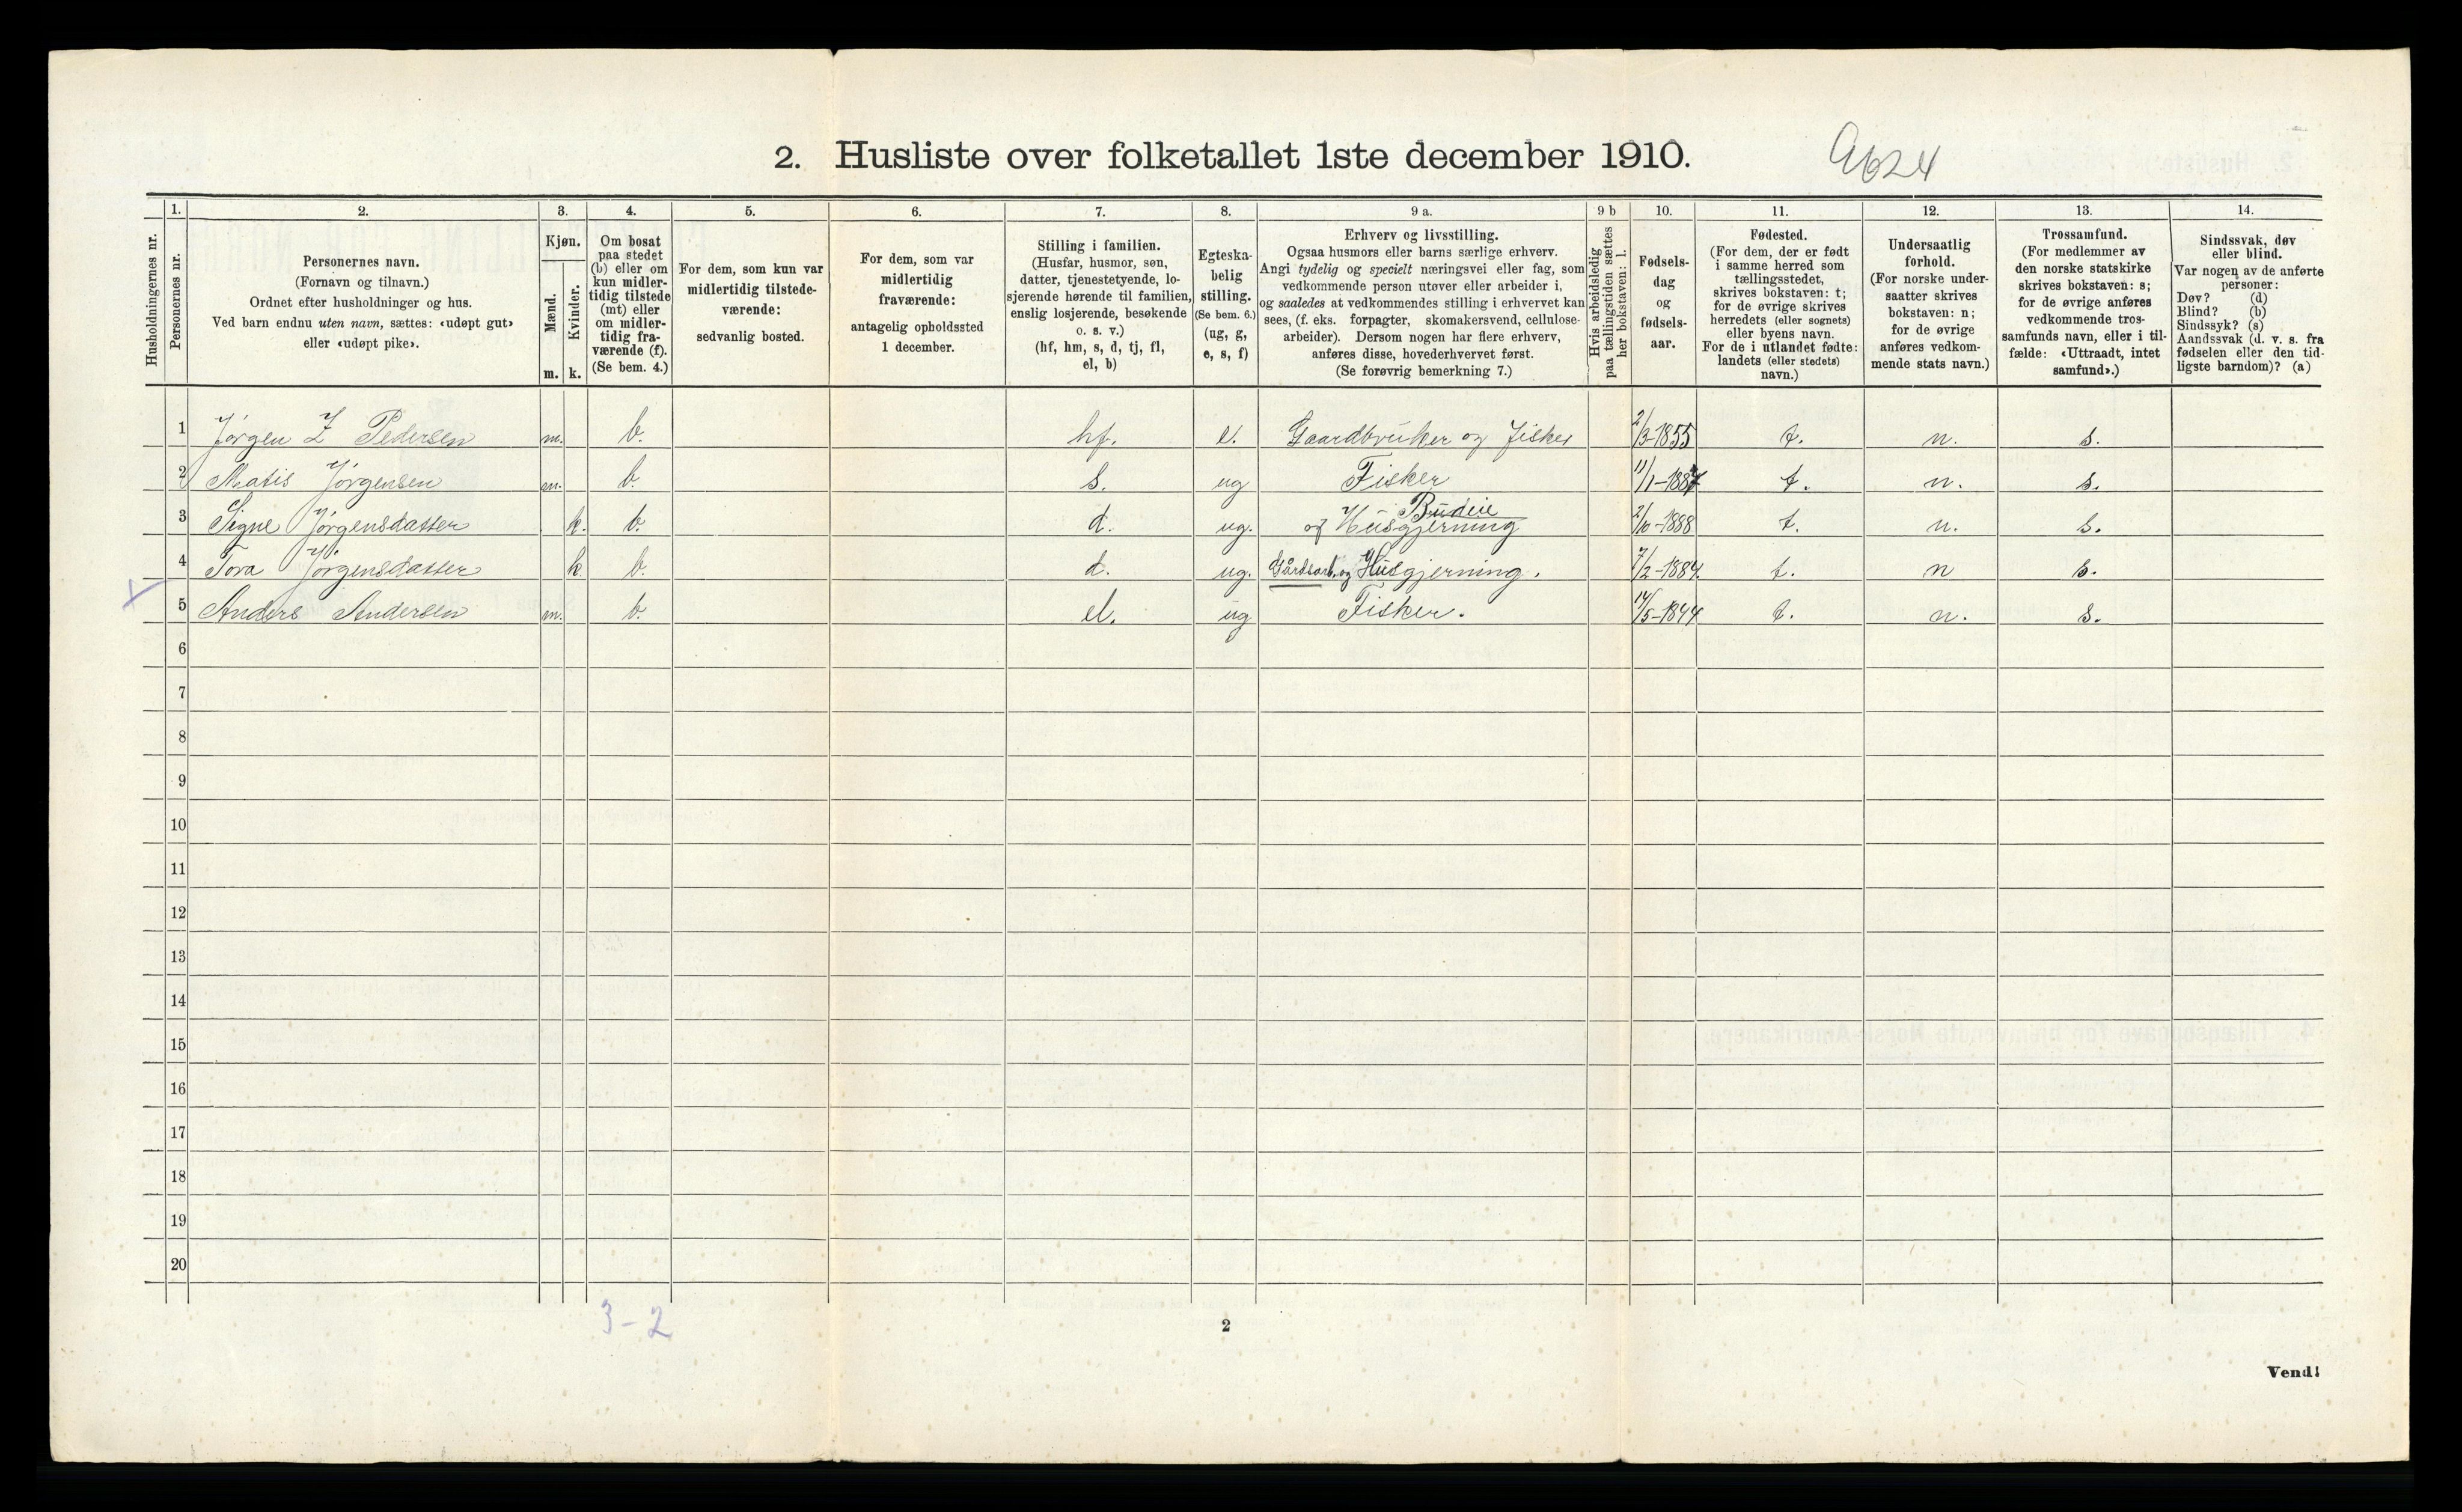 2. Husliste over folketallet 1ste december 1910.
9624
Husholdningernes nr.
1.
Personernes nr.
2.
Personernes navn.
(Fornavn og tilnavn.)
Ordnet efter husholdninger og hus.
Ved barn endnu uten navn, sættes: «udøpt gut»
eller «udøpt pike».
3.
Kjøn.
Mænd.
m.
Kvinder.
k.
4.
Om bosat
paa stedet
(b) eller om
kun midler-
tidig tilstede
(mt) eller
om midler-
tidig fra-
værende (f).
(Se bem. 4.)
5.
For dem, som kun var
midlertidig tilstede-
værende:
sedvanlig bosted.
6.
For dem, som var
midlertidig
fraværende:
antagelig opholdssted
1 december.
7.
Stilling i familien.
(Husfar, husmor, søn,
datter, tjenestetyende, lo-
sjerende hørende til familien,
enslig losjerende, besøkende
o. s. v.)
(hf, hm, s, d, tj, fl,
el, b)
8.
Egteska-
belig
stilling.
(Se bem. 6.)
(ug, g,
e, s, f)
9 a.
Erhverv og livsstilling.
Ogsaa husmors eller barns særlige erhverv.
Angi tydelig og specielt næringsvei eller fag, som
vedkommende person utøver eller arbeider i,
og saaledes at vedkommendes stilling i erhvervet kan
sees, (f. eks. forpagter, skomakersvend, cellulose-
arbeider). Dersom nogen har flere erhverv,
anføres disse, hovederhvervet først.
(Se forøvrig bemerkning 7.)
9 b
Hvis arbeidsledig
paa tællingstiden sættes
her bokstaven: l.
10.
Fødsels-
dag
og
fødsels-
aar.
11.
Fødested.
(For dem, der er født
i samme herred som
tællingsstedet,
skrives bokstaven: t;
for de øvrige skrives
herredets (eller sognets)
eller byens navn.
For de i utlandet fødte:
landets (eller stedets)
navn.)
12.
Undersaatlig
forhold.
(For norske under-
saatter skrives
bokstaven: n;
for de øvrige
anføres vedkom-
mende stats navn.)
13.
Trossamfund.
(For medlemmer av
den norske statskirke
skrives bokstaven: s;
for de øvrige anføres
vedkommende tros-
samfunds navn, eller i til-
fælde: «Uttraadt, intet
samfund».)
14.
Sindssvak, døv
eller blind.
Var nogen av de anførte
personer:
Døv? (d)
Blind? (b)
Sindssyk? (s)
Aandssvak (d. v. s. fra
fødselen eller den tid-
ligste barndom)? (a)
1 Jørgen Z Pedersen m. b. hf. e. Gaardbruker og Fisker 2/3-1855 t. n. s.
2 Matis Jørgensen m. b. s. ug Fisker 11/1-1887 t. n. s.
Budeie
3 Signe Jørgensdatter k. b. d. ug. og Husgjerning 2/10-1888 t. n. s.
4 Tora Jørgensdatter k b. d. ug. Gårdsarb. og Husgjerning. 7/2-1884. t. n s.
5 Anders Andersen m. b. el. ug Fisker. 14/5-1844 t. n. s.
6
7
8
9
10
11
12
13
14
15
16
17
18
19
20
3-2
2
Vend!